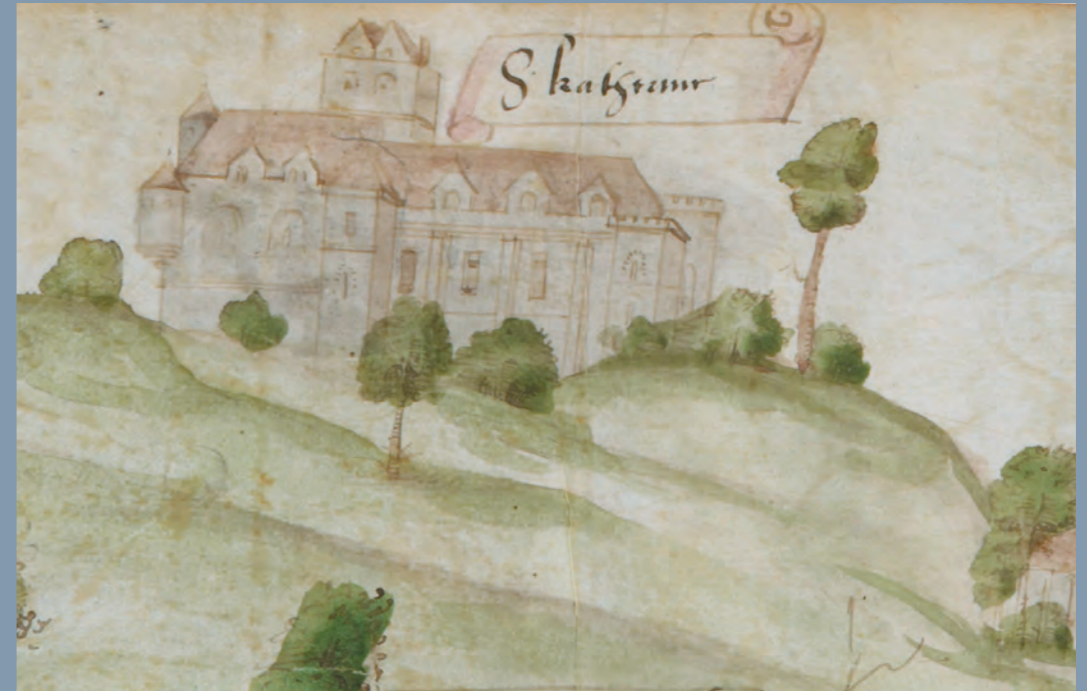 S. katherine